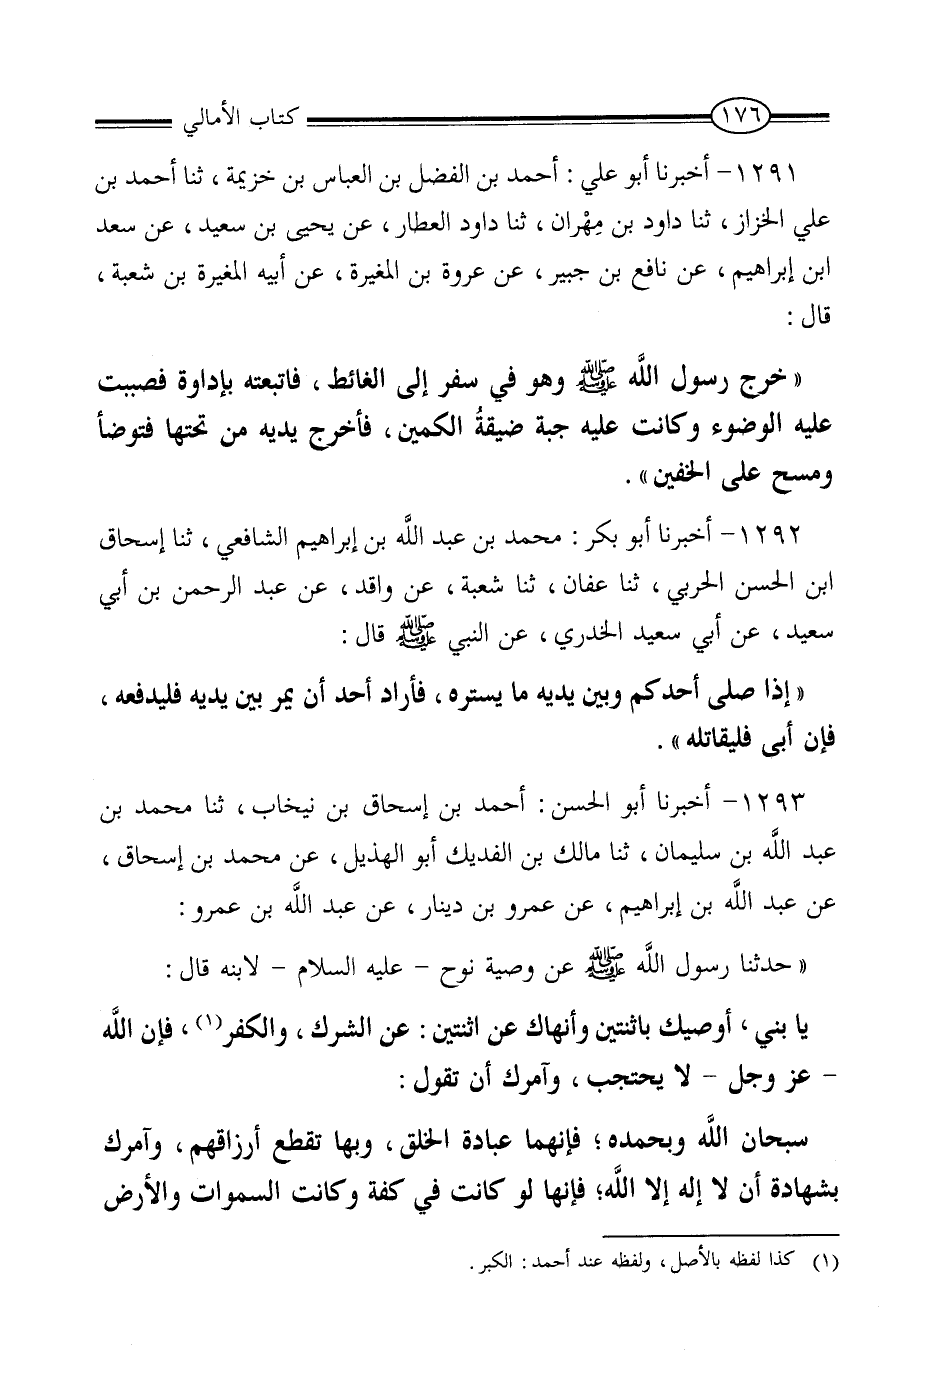 ١٧٦ كتاب الأمالي
١٢٩١- أخبرنا أبو علي : أحمد بن الفضل بن العباس بن خزيمة ، ثنا أحمد بن
علي الخزاز ، ثنا داود بن مِهْران ، ثنا داود العطار ، عن يحيى بن سعيد ، عن سعد
ابن إبراهيم ، عن نافع بن جبير ، عن عروة بن المغيرة ، عن أبيه المغيرة بن شعبة ،
قال :
« خرج رسول اللَّه ﷺ وهو في سفر إلى الغائط ، فاتبعته بإداوة فصببت
عليه الوضوء وكانت عليه جبة ضيقةُ الكمين ، فأخرج يديه من تحتها فتوضأ
ومسح على الخفين » .
١٢٩٢- أخبرنا أبو بكر : محمد بن عبد اللَّه بن إبراهيم الشافعي ، ثنا إسحاق
ابن الحسن الحربي ، ثنا عفان ، ثنا شعبة ، عن واقد ، عن عبد الرحمن بن أبي
سعيد ، عن أبي سعيد الخدري ، عن النبي ﷺ قال :
« إذا صلى أحدكم وبين يديه ما يستره ، فأراد أحد أن يمر بين يديه فليدفعه ،
فإن أبى فليقاتله » .
١٢٩٣- أخبرنا أبو الحسن : أحمد بن إسحاق بن نيخاب ، ثنا محمد بن
عبد اللَّه بن سليمان ، ثنا مالك بن الفديك أبو الهذيل ، عن محمد بن إسحاق ،
عن عبد اللَّه بن إبراهيم ، عن عمرو بن دينار ، عن عبد اللَّه بن عمرو :
« حدثنا رسول اللَّه ﷺ عن وصية نوح - عليه السلام - لابنه قال :
يا بني ، أوصيك باثنتين وأنهاك عن اثنتين : عن الشرك ، والكفر(١) ، فإن اللَّه
- عز وجل - لا يحتجب ، وآمرك أن تقول :
سبحان اللَّه وبحمده ؛ فإنهما عبادة الخلق ، وبها تقطع أرزاقهم ، وآمرك
بشهادة أن لا إله إلا اللَّه؛ فإنها لو كانت في كفة وكانت السموات والأرض
(١) كذا لفظه بالأصل ، ولفظه عند أحمد : الكبر .